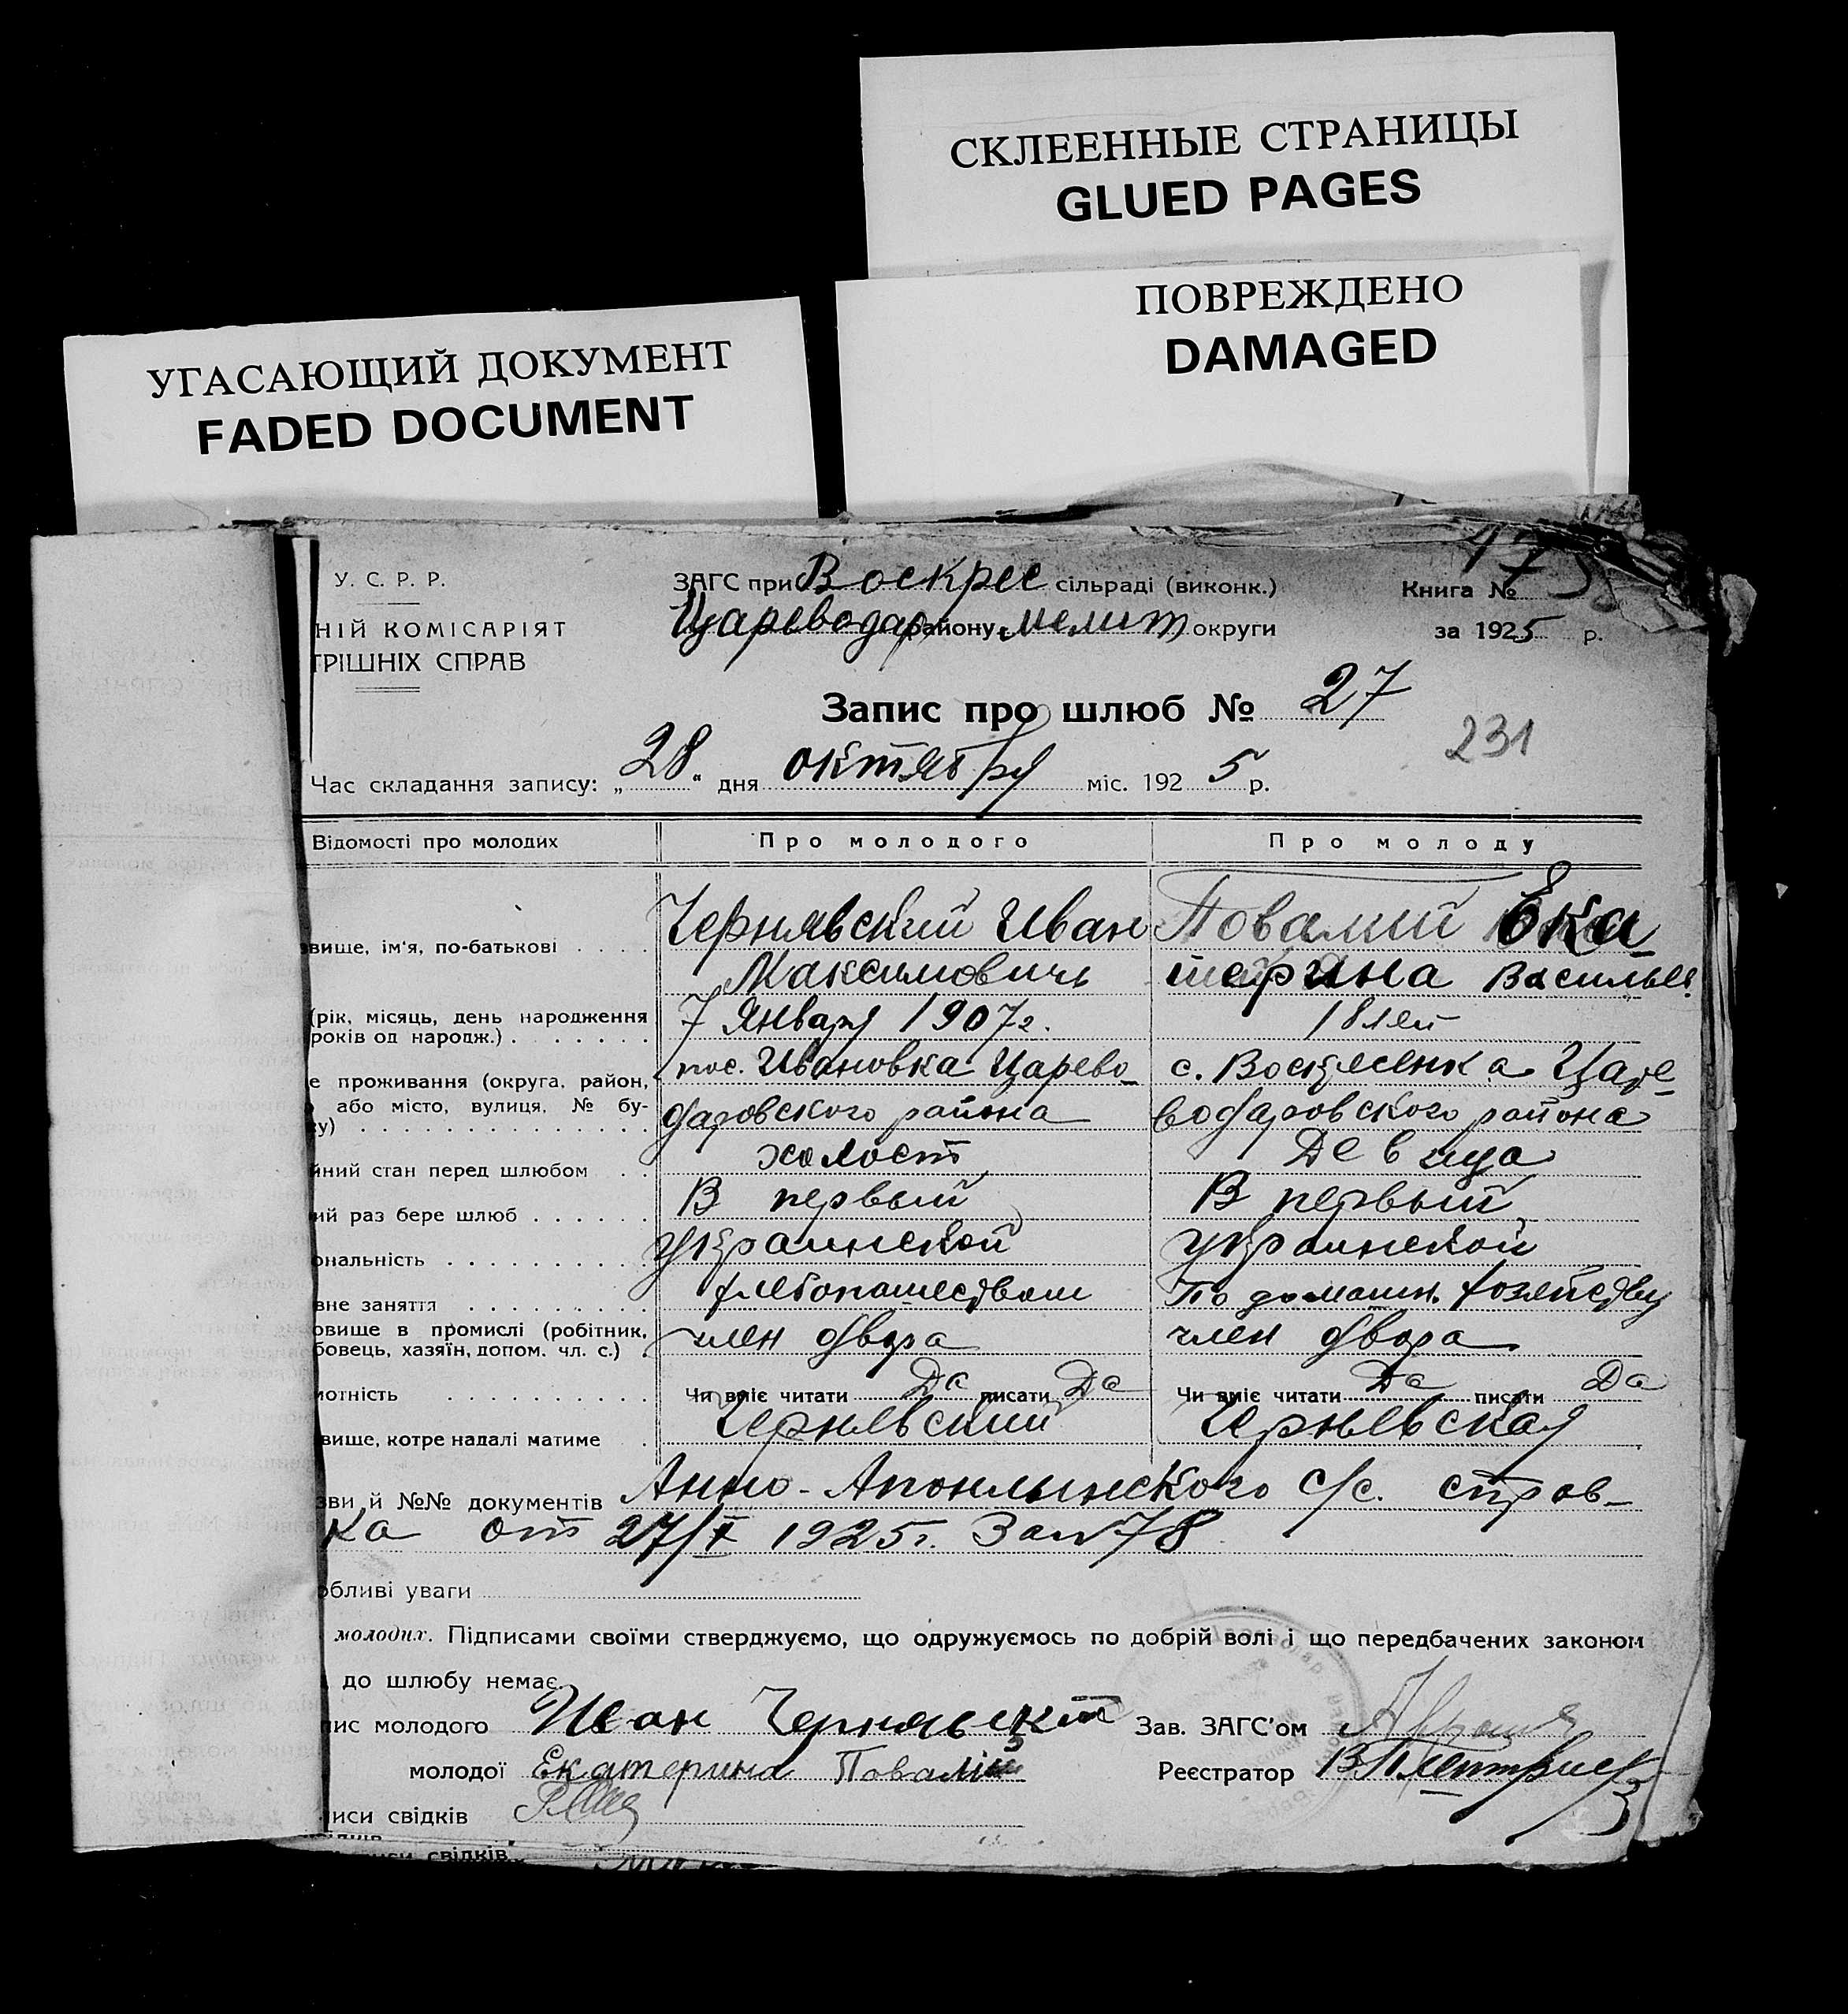 СКЛЕЕННЫЕ СТРАНИЦЫ
GLUED PAGES
ПОВРЕЖДЕНО
DAMAGED
УГАСАЮЩИЙ ДОКУМЕНТ
FADED DOCUMENT
У. С. Р. Р.
НІЙ КОМІСАРІЯТ
ТРІШНІХ СПРАВ
ЗАГС при Воскрес сільраді (виконк.)
Цареводар району, Мелит округи
Книга №
175
за 1925 р.
Запис про шлюб № 27
231
Час складання запису: „28“ дня октября міс. 1925 р.
Відомості про молодих Про молодого Про молоду
звище, ім'я, по-батькові . . . . Чернявский Иван Повалий Ека
Максимовичь терина Васильев.
(рік, місяць, день народження 7 Января 1907 г. 18 лет
років од народж.) . . . . . . .
е проживання (округа, район, пос. Ивановка Царево- с. Воскресенка Царе-
або місто, вулиця, № бу- даровского района водаровского района
ку) . . . . . . . . . . . . . .
йний стан перед шлюбом . . холост Девица
ий раз бере шлюб . . . . . . В первый В первый
ональність . . . . . . . . . . украинской украинской
вне заняття . . . . . . . . . хлебопашеством По домашн. хозяйству
овище в промислі (робітник, член двора член двора
бовець, хазяїн, допом. чл. с.) .
мотність . . . . . . . . . . Чи вміє читати Да писати Да Чи вміє читати Да писати Да
вище, котре надалі матиме . Чернявский Чернявская
зви й №№ документів Анно-Апонлынского с/с. справ-
ка от 27/X 1925 г. За №78
обливі уваги
молодих. Підписами своїми стверджуємо, що одружуємось по добрій волі і що передбачених законом
до шлюбу немає.
пис молодого Иван Чернявский Зав. ЗАГС'ом
молодої Екатерина Повалій Реєстратор
иси свідків
иси свідків